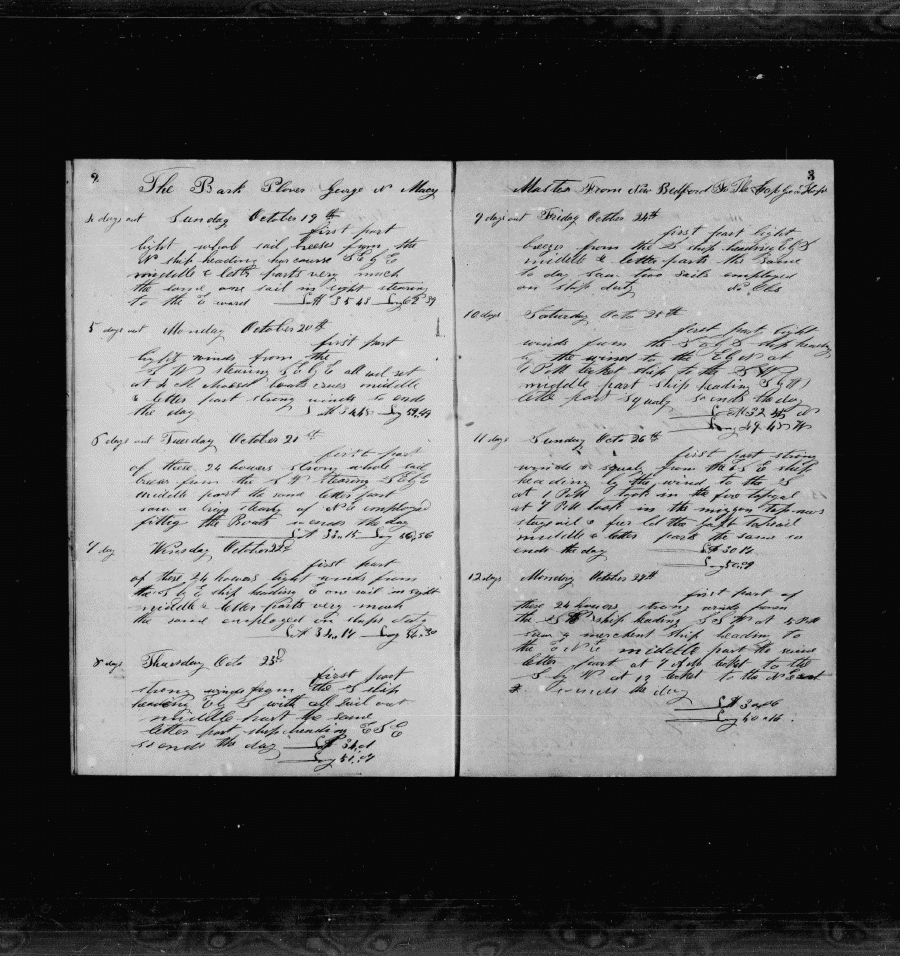 2
The Bark Plover George N Macy
4 days out Sunday October 19th
first part
light whole sail breeses from the
N ship heading her course S E by E
middele & letter parts very much
the same one sail in sight stearing
to the E ward Lat 35 48 Long 62 39
5 days out Monday October 20th
first part
light winds from the
S W stearing S E by E all sail set
at 4 boats crues middele
& letter part strong winds so ends
the day Lat 34 45 Long 59 49
6 days out Tuesday October 21st
first part
of these 24 howers strong whole sail
breses from the S W stearing S E by E
middele part the same letter part
saw a brig stearing N E employed
fitting the Boats so ends the day
Lat 34 15 Long 56 56
7 day Wensday October 22d
first part
of these 24 howers light winds from
the S by E ship heading E one sail in sight
middele & letter parts very much
the same employed on ships duty
Lat 34 14 Long 54 30
8 days Thursday Octo 23d
first part
strong winds from the S ship
heading E by S with all sail out
middele part the same
letter part ship heading E S E
so ends the day Lat 34
Long 51
3
Master From New Bedford To The Cap Good Hope
9 days out Friday October 24th
first part light
breezes from the S ship heading E by S
middele & letter parts the same
to day saw two sails employed
on ship duty No Obs
10 days Saturday Octo 25th
first part light
winds from the S ship heading
by the wind to the E by N at
PM tacket ship to the S W
middele part ship heading S by W
letter part squaly so ends the day
Lat 32 N
Long 49 45 W
11 days Sunday Octo 26th
first part strong
winds & squaly from the S E ship
heading by the wind to the S
at 1 PM took in the fore topgal
at 7 PM took in the mizzen topmos
staysail &
middele & letter part the same so
ends the day Lat 30 14
Long
12 days Monday October 27th
first part of
these 24 howers strong winds from
the S ship heading S S W at 5 PM
saw a merchent ship heading to
the E N E middele part the same
letter part at 7 AM tacket to the
S by W at 12 tacket to the N East
so ends the day
Lat 30 16
Long 50 16